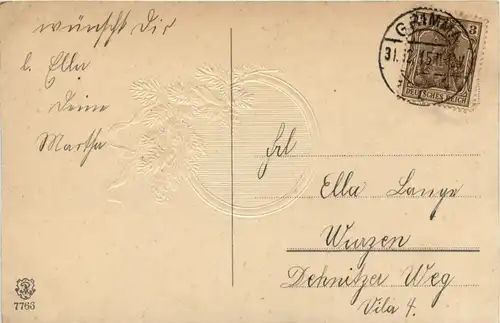 wünscht Dir
l. Ella
Deine
Martha
GRIMMA
31.12.15
3
DEUTSCHES REICH
Frl
Ella Lange
Wurzen
Dehnitzer Weg
Vila 4.
7763